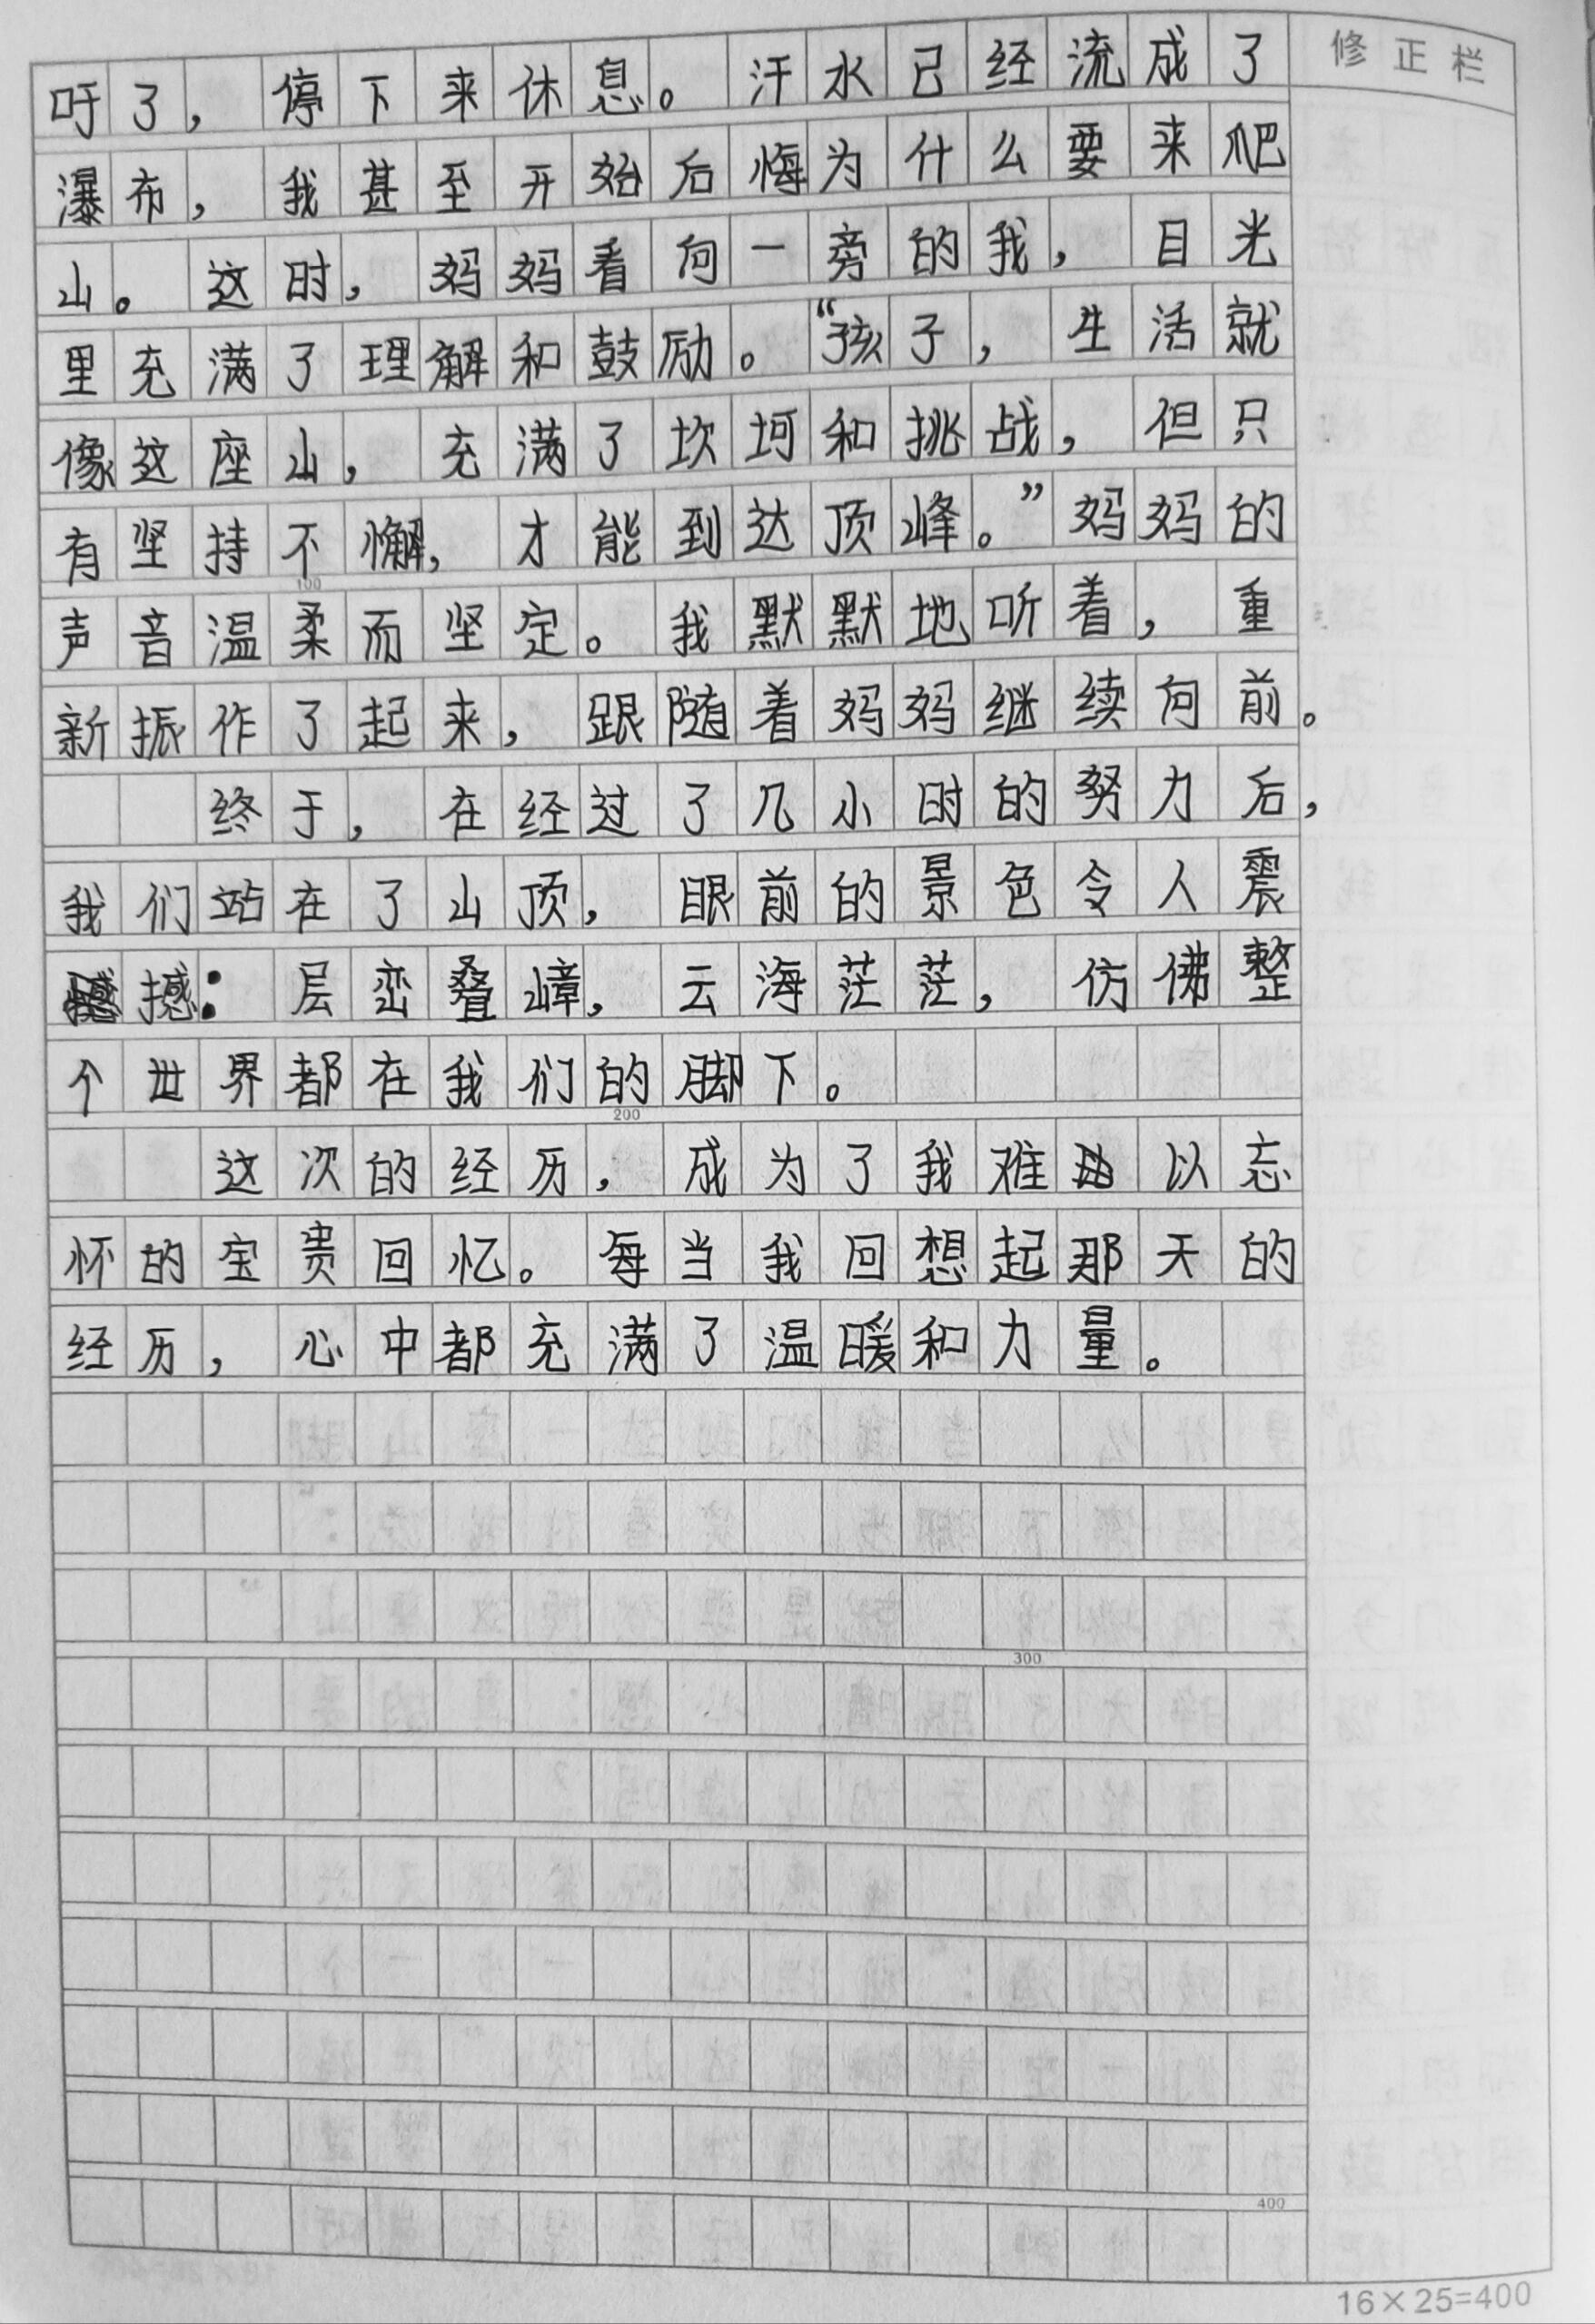 修正栏
吁了，停下来休息。汗水已经流成了
瀑布，我甚至开始后悔为什么要来爬
山。这时，妈妈看向一旁的我，目光
里充满了理解和鼓励。“孩子，生活就
像这座山，充满了坎坷和挑战，但只
有坚持不懈，才能到达顶峰。”妈妈的
100
声音温柔而坚定。我默默地听着，重
新振作了起来，跟随着妈妈继续向前。
终于，在经过了几小时的努力后，
我们站在了山顶，眼前的景色令人震
撼：层峦叠嶂，云海茫茫，仿佛整
个世界都在我们的脚下。
200
这次的经历，成为了我难以忘
怀的宝贵回忆。每当我回想起那天的
经历，心中都充满了温暖和力量。
300
400
16×25=400